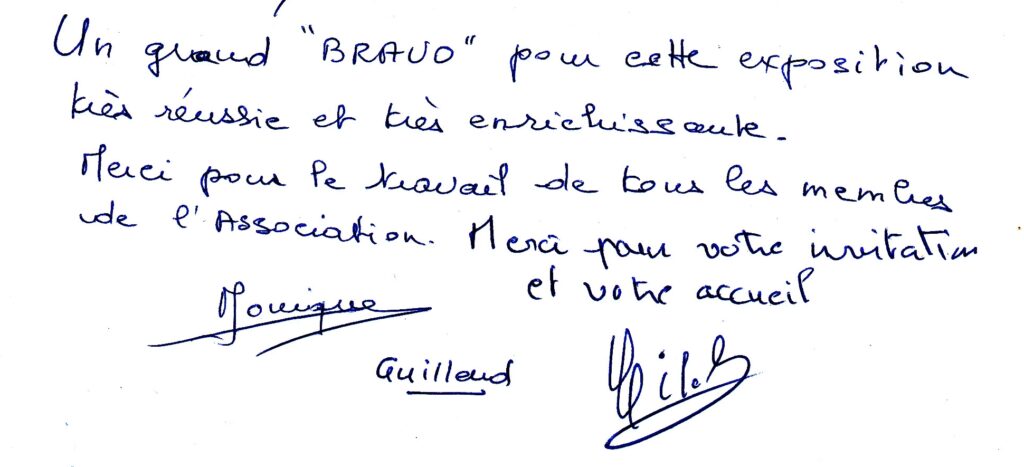 Un grand "BRAVO" pour cette exposition
très réussie et très enrichissante.
Merci pour le travail de tous les membres
de l'Association. Merci pour votre invitation
et votre accueil
Monique
Guilloud